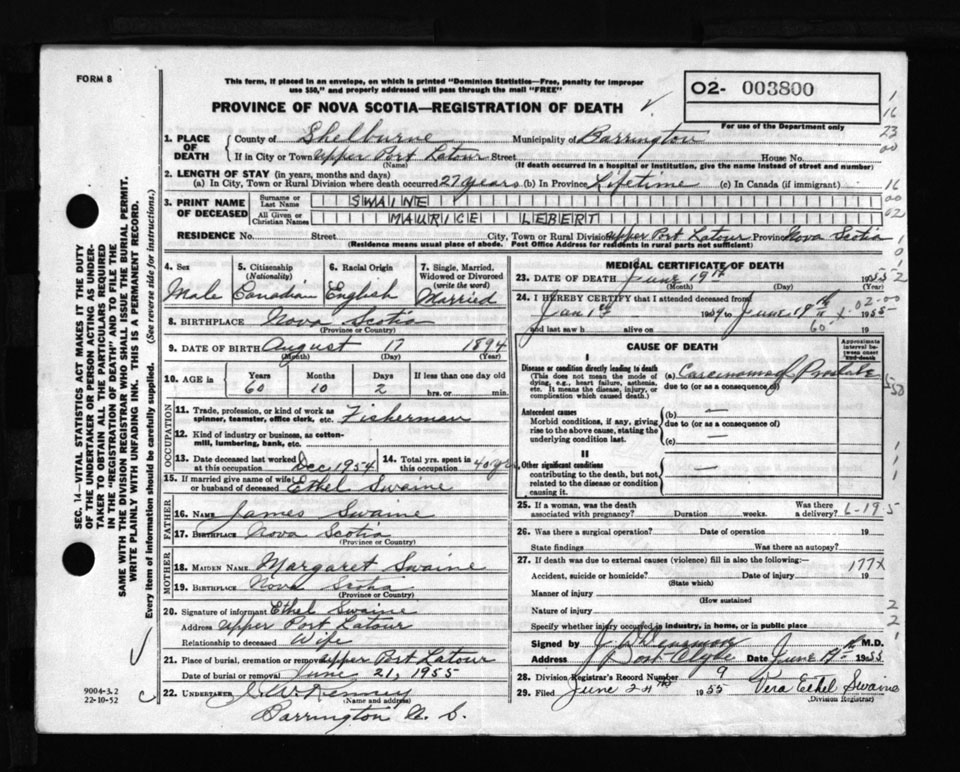 FORM 8
This form, if placed in an envelope, on which is printed "Dominion Statistics—Free, penalty for improper
use $50," and properly addressed will pass through the mail "FREE"
O2- 003800
For use of the Department only
PROVINCE OF NOVA SCOTIA—REGISTRATION OF DEATH
SEC. 14—VITAL STATISTICS ACT MAKES IT THE DUTY
OF THE UNDERTAKER OR PERSON ACTING AS UNDER-
TAKER TO OBTAIN ALL THE PARTICULARS REQUIRED
IN THE "REGISTRATION OF DEATH" AND TO FILE THE
SAME WITH THE DIVISION REGISTRAR WHO SHALL ISSUE THE BURIAL PERMIT.
WRITE PLAINLY WITH UNFADING INK. THIS IS A PERMANENT RECORD.
Every item of information should be carefully supplied. (See reverse side for instructions.)
1. PLACE OF DEATH
County of Shelburne Municipality of Barrington
If in City or Town Upper Port Latour Street House No.
(Name) (If death occurred in a hospital or institution, give the name instead of street and number)
2. LENGTH OF STAY (in years, months and days)
(a) In City, Town or Rural Division where death occurred 27 years (b) In Province Lifetime (c) In Canada (if immigrant)
3. PRINT NAME OF DECEASED
Surname or Last Name SWAINE
All Given or Christian Names MAURICE LEBERT
RESIDENCE No. Street City, Town or Rural Division Upper Port Latour Province Nova Scotia
(Residence means usual place of abode. Post Office Address for residents in rural parts not sufficient)
4. Sex Male
5. Citizenship (Nationality) Canadian
6. Racial Origin English
7. Single, Married, Widowed or Divorced (write the word) Married
8. BIRTHPLACE Nova Scotia
(Province or Country)
9. DATE OF BIRTH August 17 1894
(Month) (Day) (Year)
10. AGE in Years Months Days If less than one day old
60 10 2 hrs. or min.
OCCUPATION
11. Trade, profession, or kind of work as spinner, teamster, office clerk, etc. Fisherman
12. Kind of industry or business, as cotton-mill, lumbering, bank, etc.
13. Date deceased last worked at this occupation Dec 1954
14. Total yrs. spent in this occupation 40 yrs
15. If married give name of wife or husband of deceased Ethel Swaine
FATHER
16. NAME James Swaine
17. BIRTHPLACE Nova Scotia
(Province or Country)
MOTHER
18. MAIDEN NAME Margaret Swaine
19. BIRTHPLACE Nova Scotia
(Province or Country)
20. Signature of informant Ethel Swaine
Address Upper Port Latour
Relationship to deceased Wife
21. Place of burial, cremation or removal Upper Port Latour
Date of burial or removal June 21, 1955
22. UNDERTAKER
(Name and address)
Barrington N. S.
9004-3.2
22-10-52
MEDICAL CERTIFICATE OF DEATH
23. DATE OF DEATH June 19th 1955
(Month) (Day) (Year)
24. I HEREBY CERTIFY that I attended deceased from
Jan 1st to June 19th 1955
and last saw h alive on 19
CAUSE OF DEATH
Approximate interval between onset and death
I
Disease or condition directly leading to death
(This does not mean the mode of dying, e.g., heart failure, asthenia, etc. It means the disease, injury, or complication which caused death.)
(a) Carcinoma of Prostate
due to (or as a consequence of)
Antecedent causes
Morbid conditions, if any, giving rise to the above cause, stating the underlying condition last.
(b) —
due to (or as a consequence of)
(c) —
II
Other significant conditions
contributing to the death, but not related to the disease or condition causing it.
25. If a woman, was the death associated with pregnancy? Duration weeks. Was there a delivery?
26. Was there a surgical operation? Date of operation 19
State findings Was there an autopsy?
27. If death was due to external causes (violence) fill in also the following:— 177X
Accident, suicide or homicide? Date of injury 19
(State which)
Manner of injury
(How sustained
Nature of injury
Specify whether injury occurred in industry, in home, or in public place
Signed by M.D.
Address Port Clyde Date June 19th 1955
28. Division Registrar's Record Number 9
29. Filed June 24th 1955 Vera Ethel Swaine
(Division Registrar)